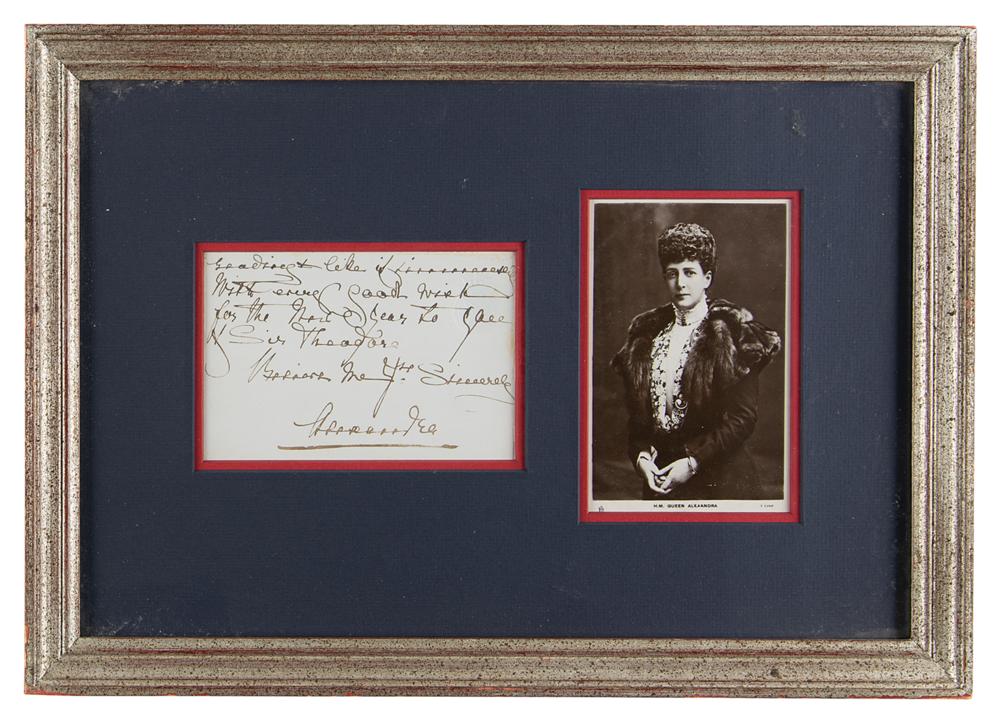 reading & like i
With every good wish
for the New Year to you
& Sir Theodore
Believe me Yrs. Sincerely
Alexandra
H.M. QUEEN ALEXANDRA